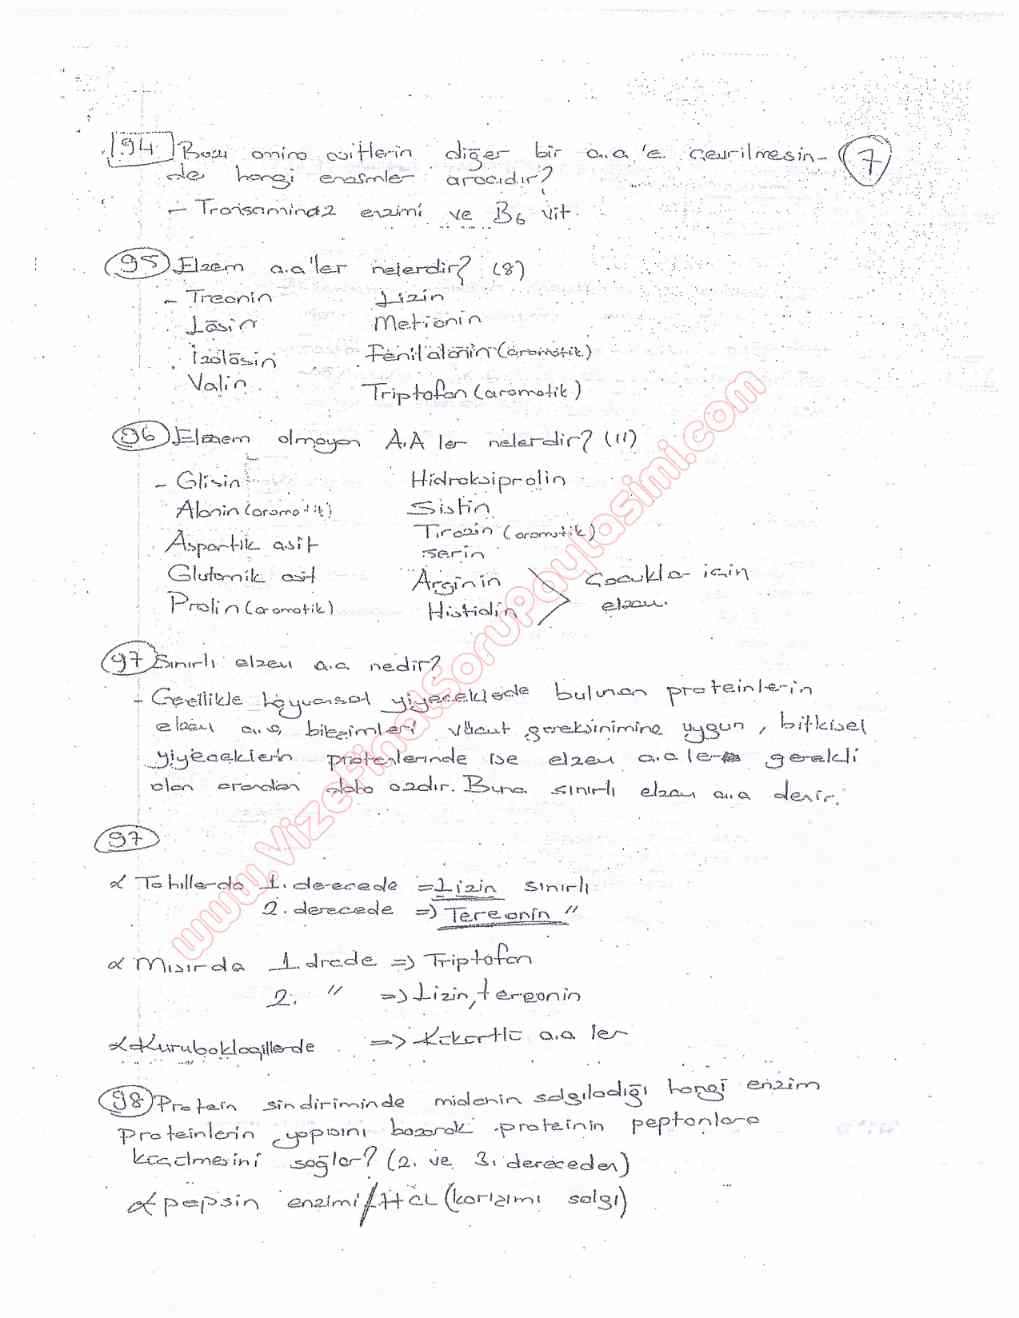 94 Bazı amino asitlerin diğer bir a.a 'e çevrilmesin- 7
de hangi enzimler aracıdır?
- Transaminaz enzimi ve B6 vit.
95 Elzem a.a'ler nelerdir? (8)
- Treonin Lizin
Lösin Metionin
İzolösin Fenilalanin (aromatik)
Valin Triptofan (aromatik)
96 Elzem olmayan A.A ler nelerdir? (11)
- Glisin Hidroksiprolin
Alanin (aromatik) Sistin
Aspartik asit Tirozin (aromatik)
serin
Glutamik asit Arginin Çocuklar için
Prolin (aromatik) Histidin elzem.
97 Sınırlı elzem a.a nedir?
- Genellikle hayvansal yiyeceklede bulunan proteinlerin
elzem a.a bileşimleri vücut gereksinimine uygun, bitkisel
yiyeceklerin proteinlerinde ise elzem a.a ler gerekli
olan orandan daha azdır. Buna sınırlı elzem a.a denir.
97
α Tahıllarda 1. derecede => Lizin sınırlı
2. derecede => Tereonin "
α Mısırda 1. drade => Triptofan
2. " => Lizin, tereonin
α Kurubaklagillerde => Kükürtlü a.a ler
98 Protein sindiriminde midenin salgıladığı hangi enzim
proteinlerin yapısını bozarak proteinin peptonlara
sağlar? (2. ve 3. dereceden)
α pepsin enzimi / HCL (karışımı salgı)
www.VizeFinalSoruPaylasimi.com